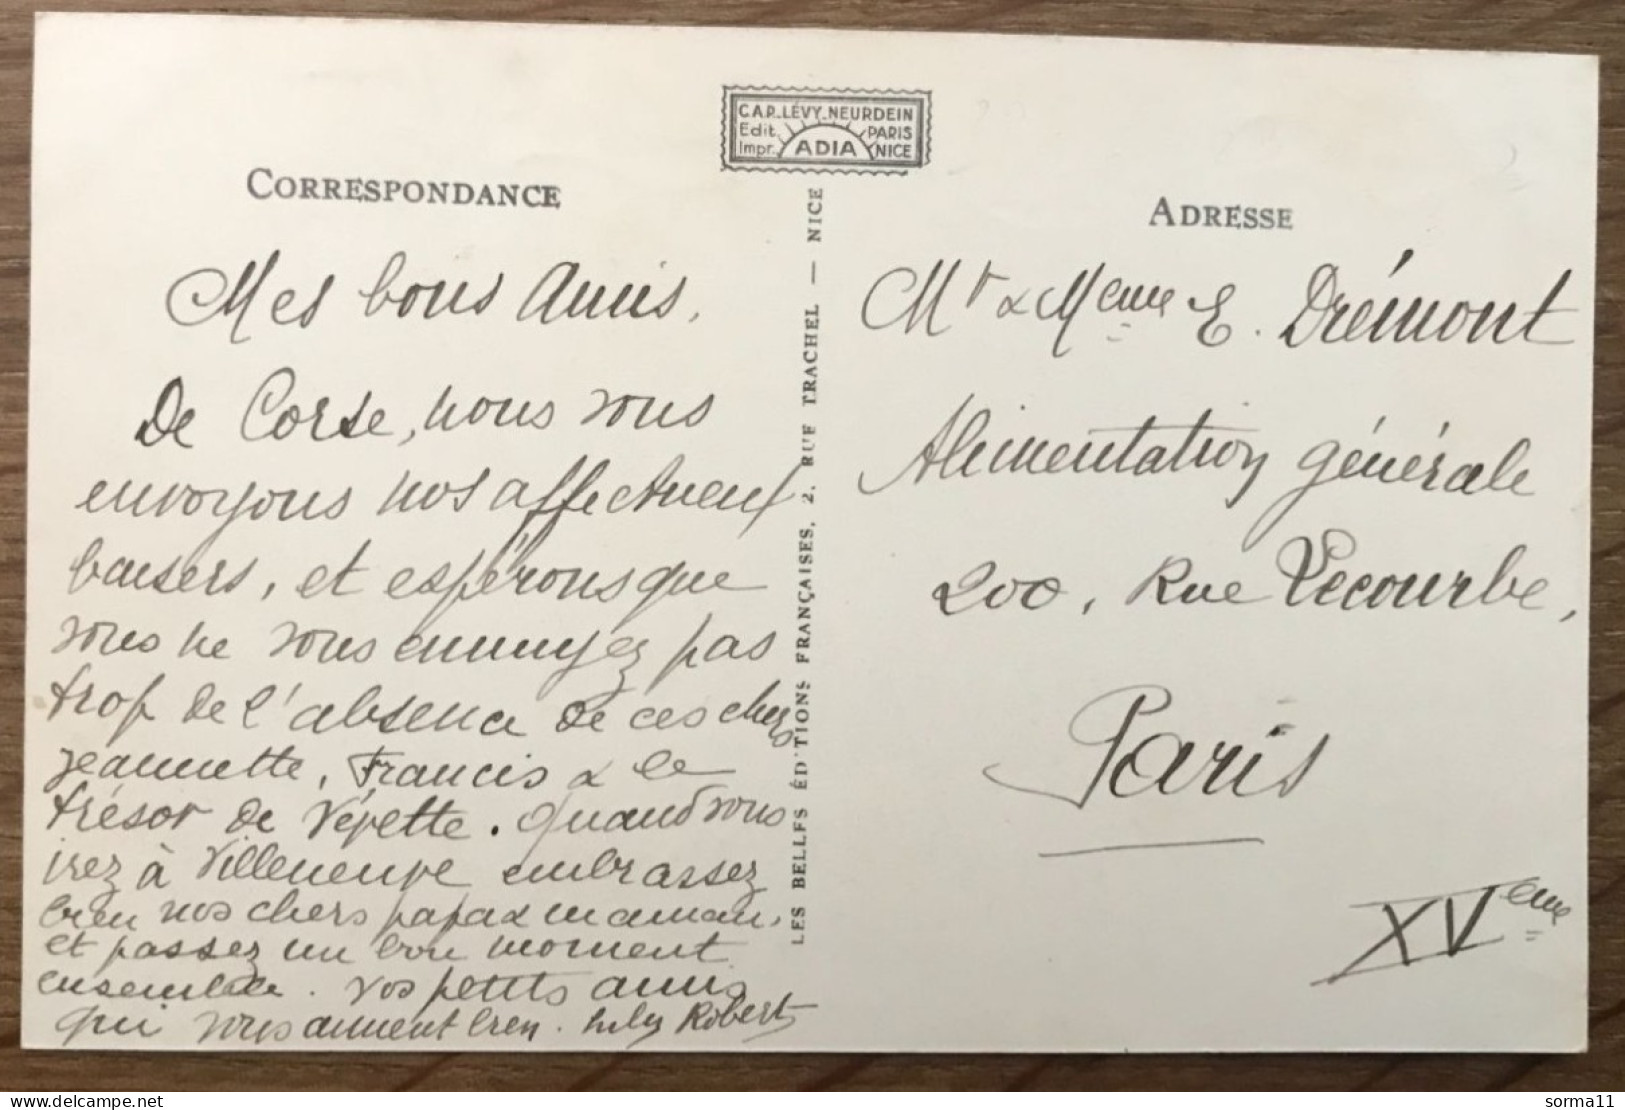 C.A.P. LÉVY_NEURDEIN
Edit. PARIS
Impr. ADIA NICE
CORRESPONDANCE
Mes bons Amis,
De Corse, nous vous
envoyons nos affectueux
baisers, et espérons que
vous ne vous ennuyez pas
trop de l'absence de ces chers
Jeannette, Francis & le
trésor de Pépette. Quand vous
irez à Villeneuve embrassez
bien nos chers papa & maman,
et passez un bon moment
ensemble. Vos petits amis
qui vous aiment bien. Luly Robert
LES BELLES ÉDITIONS FRANÇAISES, 2, RUE TRACHEL — NICE
ADRESSE
Mr & Meme E. Drémont
Alimentation générale
200, Rue Lecourbe,
Paris
XVeme
delcampe.net
sorma11